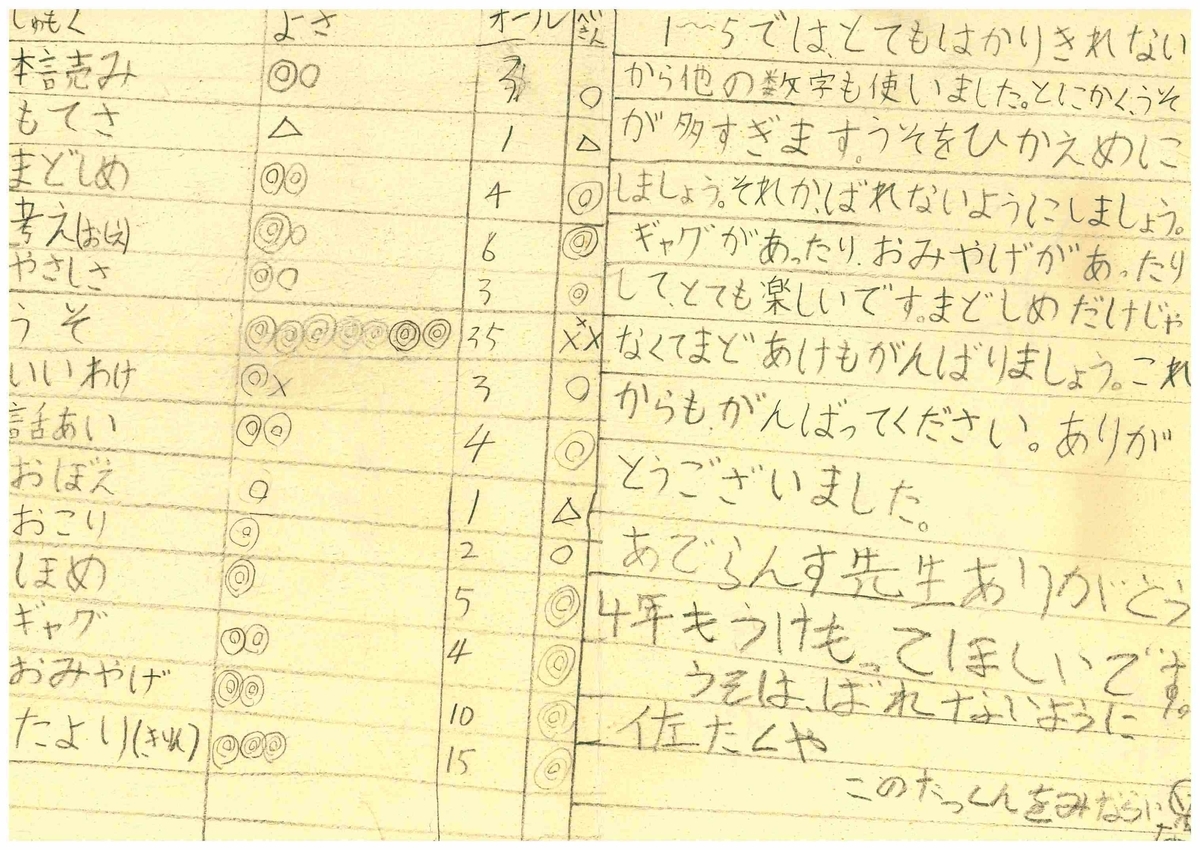 しゅもく よさ オール へいきん
本読み ◎○ 3 ○
もてさ △ 1 △
まどしめ ◎◎ 4 ◎
考え(おしえ) ◎○ 6 ◎
やさしさ ◎○ 3 ◎
うそ ◎◎◎◎◎◎◎ 35 ×××
いいわけ ◎× 3 ○
話あい ◎◎ 4 ◎
おぼえ ○ 1 △
おこり ◎ 2 ○
ほめ ◎ 5 ◎
ギャグ ◎◎ 4 ◎
おみやげ ◎◎ 10 ◎
たより(きれ) ◎◎◎ 15 ◎
1〜5では、とてもはかりきれない
から他の数字も使いました。とにかく、うそ
が多すぎます。うそをひかえめに
しましょう。それか、ばれないようにしましょう。
ギャグがあったり、おみやげがあったり
して、とても楽しいです。まどしめだけじゃ
なくてまどあけもがんばりましょう。これ
からも、がんばってください。ありが
とうございました。
あでらんす先生ありがとう
4年もうけもってほしいです。
うそは、ばれないように
佐たくや
このたっくんをみならい